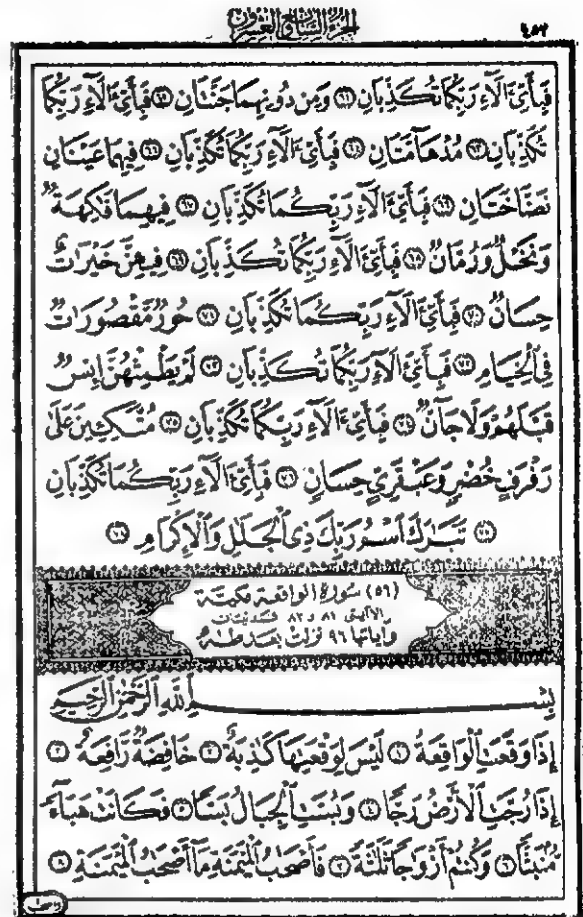 الجزء السابع والعشرون
٤٥٢
فَبِأَىِّ ءَالَآءِ رَبِّكُمَا تُكَذِّبَانِ ٦١ وَمِن دُونِهِمَا جَنَّتَانِ ٦٢ فَبِأَىِّ ءَالَآءِ رَبِّكُمَا
تُكَذِّبَانِ ٦٣ مُدْهَآمَّتَانِ ٦٤ فَبِأَىِّ ءَالَآءِ رَبِّكُمَا تُكَذِّبَانِ ٦٥ فِيهِمَا عَيْنَانِ
نَضَّاخَتَانِ ٦٦ فَبِأَىِّ ءَالَآءِ رَبِّكُمَا تُكَذِّبَانِ ٦٧ فِيهِمَا فَٰكِهَةٌ
وَنَخْلٌ وَرُمَّانٌ ٦٨ فَبِأَىِّ ءَالَآءِ رَبِّكُمَا تُكَذِّبَانِ ٦٩ فِيهِنَّ خَيْرَٰتٌ
حِسَانٌ ٧٠ فَبِأَىِّ ءَالَآءِ رَبِّكُمَا تُكَذِّبَانِ ٧١ حُورٌ مَّقْصُورَٰتٌ
فِى ٱلْخِيَامِ ٧٢ فَبِأَىِّ ءَالَآءِ رَبِّكُمَا تُكَذِّبَانِ ٧٣ لَمْ يَطْمِثْهُنَّ إِنسٌ
قَبْلَهُمْ وَلَا جَآنٌّ ٧٤ فَبِأَىِّ ءَالَآءِ رَبِّكُمَا تُكَذِّبَانِ ٧٥ مُتَّكِـِٔينَ عَلَىٰ
رَفْرَفٍ خُضْرٍ وَعَبْقَرِىٍّ حِسَانٍ ٧٦ فَبِأَىِّ ءَالَآءِ رَبِّكُمَا تُكَذِّبَانِ
٧٧ تَبَٰرَكَ ٱسْمُ رَبِّكَ ذِى ٱلْجَلَٰلِ وَٱلْإِكْرَامِ ٧٨
(٥٦) سورة الواقعة مكية
الا آيتى ٨١ و ٨٢ فمدنيتان
وآياتها ٩٦ نزلت بعد طه
بِسْمِ ٱللَّهِ ٱلرَّحْمَٰنِ ٱلرَّحِيمِ
إِذَا وَقَعَتِ ٱلْوَاقِعَةُ ١ لَيْسَ لِوَقْعَتِهَا كَاذِبَةٌ ٢ خَافِضَةٌ رَّافِعَةٌ ٣
إِذَا رُجَّتِ ٱلْأَرْضُ رَجًّا ٤ وَبُسَّتِ ٱلْجِبَالُ بَسًّا ٥ فَكَانَتْ هَبَآءً
مُّنۢبَثًّا ٦ وَكُنتُمْ أَزْوَٰجًا ثَلَٰثَةً ٧ فَأَصْحَٰبُ ٱلْمَيْمَنَةِ مَآ أَصْحَٰبُ ٱلْمَيْمَنَةِ ٨